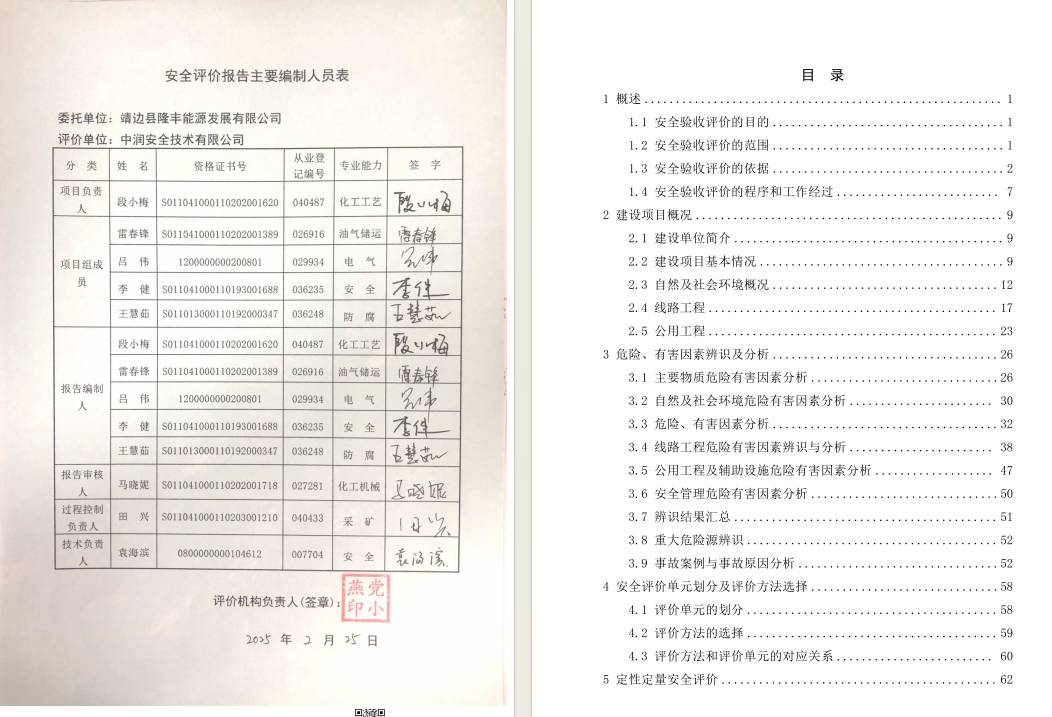 安全评价报告主要编制人员表
委托单位：靖边县隆丰能源发展有限公司
评价单位：中润安全技术有限公司
分 类 姓 名 资格证书号 从业登记编号 专业能力 签 字
项目负责人 段小梅 S011041000110202001620 040487 化工工艺 段小梅
项目组成员 雷春锋 S011041000110202001389 026916 油气储运 雷春锋
吕 伟 1200000000200801 029934 电 气 吕伟
李 健 S011041000110193001688 036235 安 全 李健
王慧茹 S011013000110192000347 036248 防 腐 王慧茹
报告编制人 段小梅 S011041000110202001620 040487 化工工艺 段小梅
雷春锋 S011041000110202001389 026916 油气储运 雷春锋
吕 伟 1200000000200801 029934 电 气 吕伟
李 健 S011041000110193001688 036235 安 全 李健
王慧茹 S011013000110192000347 036248 防 腐 王慧茹
报告审核人 马晓妮 S011041000110202001718 027281 化工机械 马晓妮
过程控制负责人 田 兴 S011041000110203001210 040433 采 矿 田兴
技术负责人 袁海滨 0800000000104612 007704 安 全 袁海滨
评价机构负责人(签章)：
燕党
印小
2025 年 2 月 25 日
目 录
1 概述 1
1.1 安全验收评价的目的 1
1.2 安全验收评价的范围 1
1.3 安全验收评价的依据 2
1.4 安全验收评价的程序和工作经过 7
2 建设项目概况 9
2.1 建设单位简介 9
2.2 建设项目基本情况 9
2.3 自然及社会环境概况 12
2.4 线路工程 17
2.5 公用工程 23
3 危险、有害因素辨识及分析 26
3.1 主要物质危险有害因素分析 26
3.2 自然及社会环境危险有害因素分析 30
3.3 危险、有害因素分析 32
3.4 线路工程危险有害因素辨识与分析 38
3.5 公用工程及辅助设施危险有害因素分析 47
3.6 安全管理危险有害因素分析 50
3.7 辨识结果汇总 51
3.8 重大危险源辨识 52
3.9 事故案例与事故原因分析 52
4 安全评价单元划分及评价方法选择 58
4.1 评价单元的划分 58
4.2 评价方法的选择 59
4.3 评价方法和评价单元的对应关系 60
5 定性定量安全评价 62